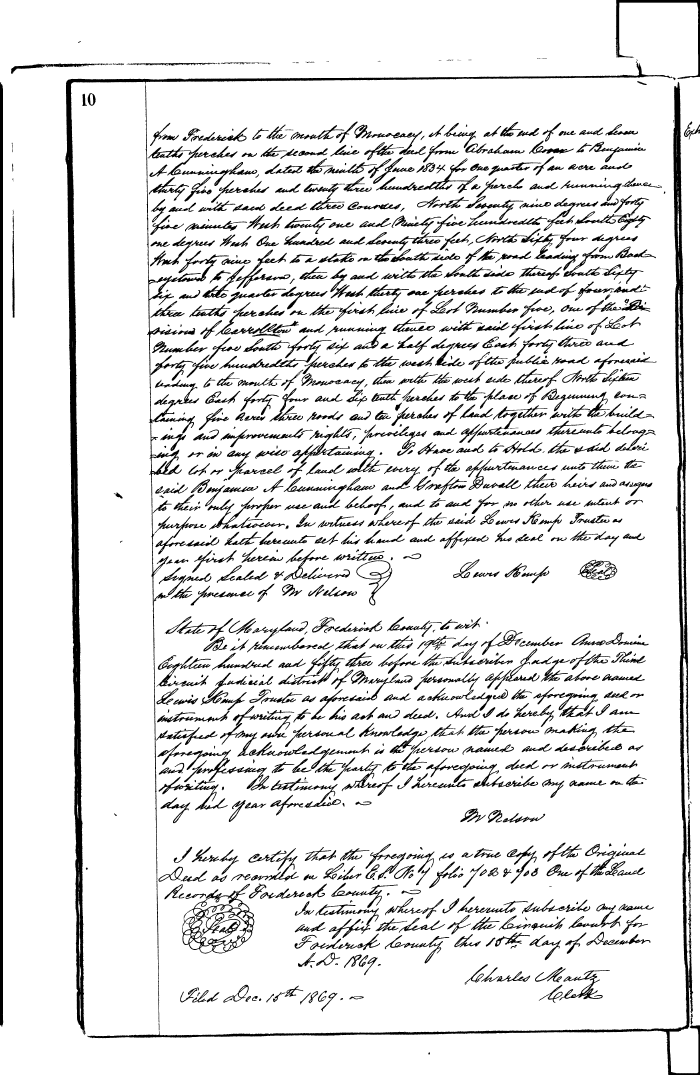 10
from Frederick to the mouth of Monocacy, it being at the end of one and seven
tenths perches on the second line of the deed from Abraham Kern to Benjamin
A Cunningham, dated the ninth of June 1834 for one quarter of an acre and
thirty five perches and twenty three hundredths of a perch and running thence
by and with said deed three courses, North Seventy nine degrees and forty
five minutes West twenty one and Ninety five hundredth feet South Eighty
one degrees West One hundred and Seventy three feet, North Sixty four degrees
West forty nine feet to a stake on the South side of the road leading from Buck-
-eystown to Jefferson, then by and with the South side thereof South Sixty
six and three quarter degrees West thirty one perches to the end of four and
three tenths perches on the first line of Lot Number five, one of the "Di-
-visions of Carrollton" and running thence with said first line of Lot
Number five South forty six and a half degrees East forty three and
forty five hundredths perches to the west side of the public road aforesaid
leading to the mouth of Monocacy, then with the west side thereof North Sixteen
degrees East forty four and six tenth perches to the place of Beginning con-
-taining five acres three roods and ten perches of land together with the build-
-ings and improvements rights, privileges and appurtenances thereunto belong-
-ing or in any wise appertaining. To Have and to Hold the said descri
-bed lot or parcel of land with every of the appurtenances unto them the
said Benjamin A Cunningham and Grafton Duvall their heirs and assigns
to their only proper use and behoof, and to and for no other use intent or
purpose whatsoever. In witness whereof the said Lewis Kemp Trustee as
aforesaid hath hereunto set his hand and affixed his seal on the day and
year first herein before written.
Signed Sealed & Delivered
in the presence of M Nelson
Lewis Kemp Seal
State of Maryland, Frederick County, to wit.
Be it remembered that on this 19th day of December Anno Domini
Eighteen hundred and fifty three before the subscriber Judge of the Third
Circuit Judicial district of Maryland personally appeared the above named
Lewis Kemp Trustee as aforesaid and acknowledged the aforegoing deed or
instrument of writing to be his act and deed. And I do hereby that I am
satisfied of my own personal knowledge that the person making the
aforegoing acknowledgement is the person named and described as
and professing to be the party to the aforegoing deed or instrument
of writing. In testimony whereof I hereunto subscribe my name on the
day and year aforesaid.
M Nelson
I hereby certify that the foregoing is a true copy of the Original
Deed as recorded in Liber E.S. No 4 folio 702 & 703 One of the Land
Records of Frederick County.
Seal
In testimony whereof I hereunto subscribe my name
and affix the seal of the Circuit Court for
Frederick County this 15th day of December
A.D. 1869.
Charles Mantz
Clerk
Filed Dec. 15th 1869.